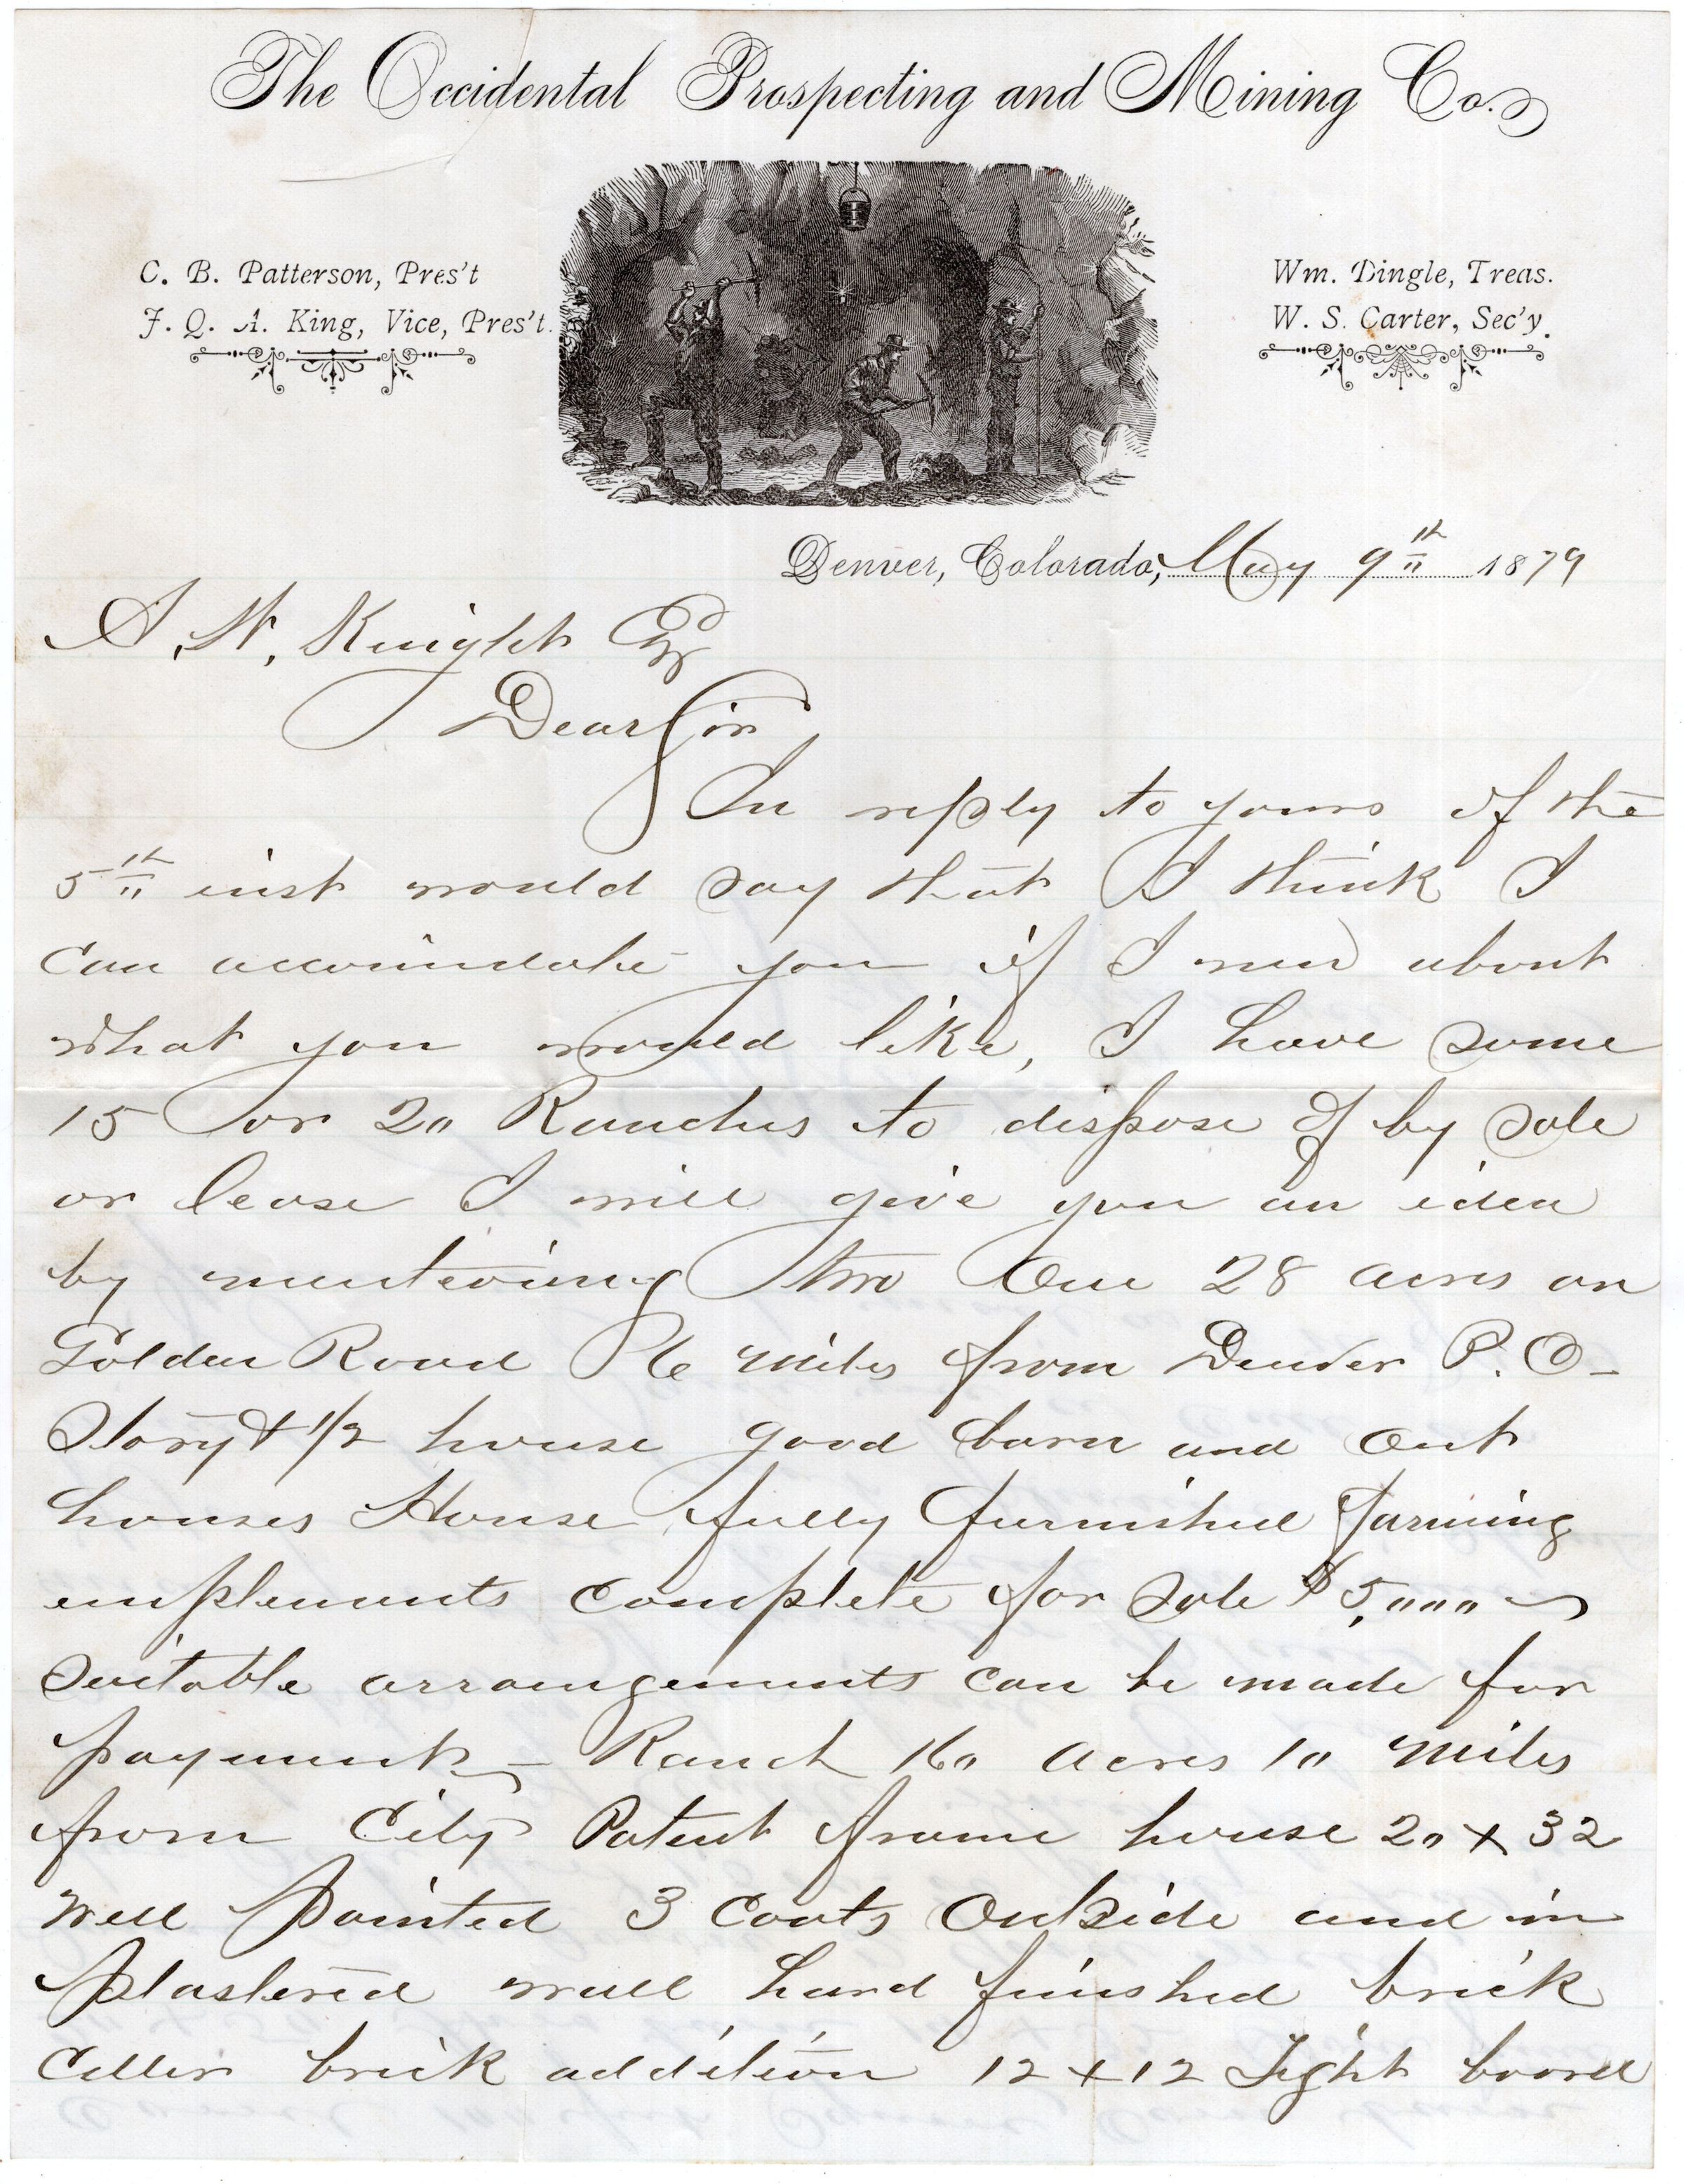 The Occidental Prospecting and Mining Co.
C. B. Patterson, Pres't
J. Q. A. King, Vice, Pres't.
Wm. Dingle, Treas.
W. S. Carter, Sec'y.
Denver, Colorado, May 9th 1879
Knight Esq
Dear Sir
In reply to yours of the
5th inst would say that I think I
can accomodate you if I about
what you would like, I have some
15 or 20 Ranches to dispose of by sale
or lease I will give you an idea
by mentioning two One 28 acres on
Golden Road 6 miles from Denver P.O -
Story & 1/2 house good barn and out
houses House fully furnished farming
emplements complete for sale $5,000
suitable arrangements can be made for
payment - Ranch 160 acres 10 miles
from City Patent frame house 20 x 32
well painted 3 coats outside and in
plastered wall hard finished brick
celler brick addition 12 x 12 Tight board